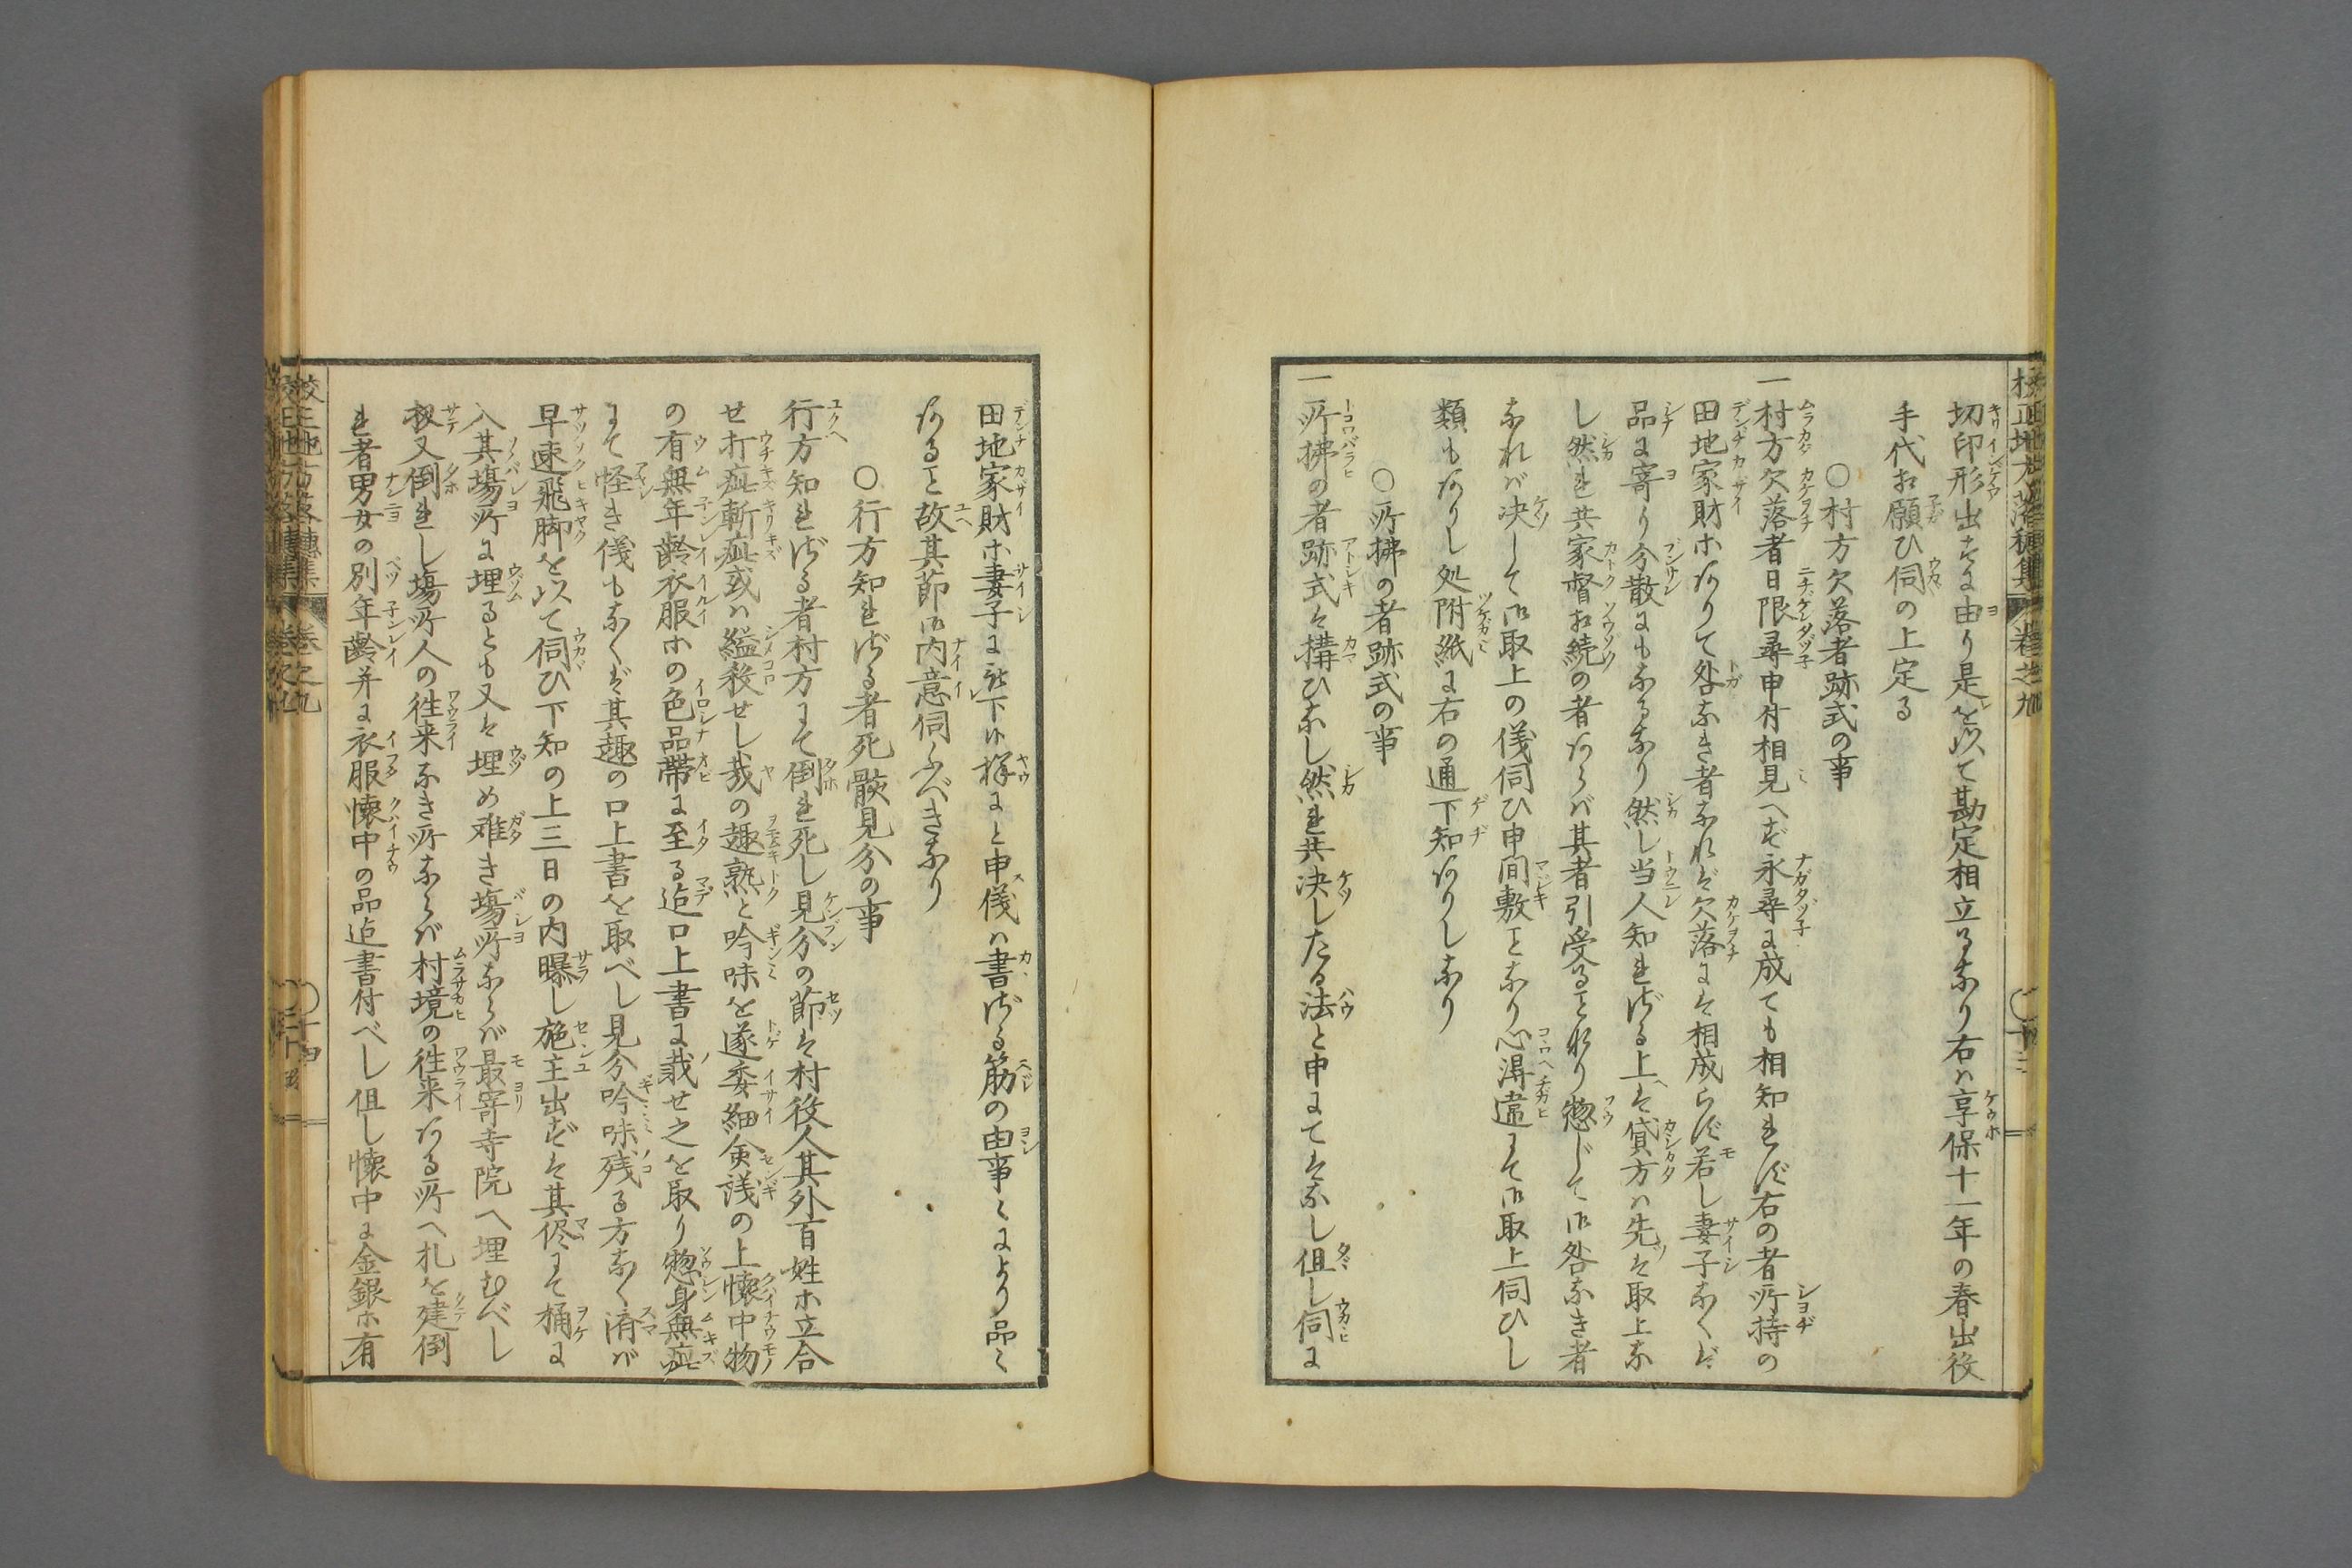 切印形出すに由り是を以て勘定相立るなり右ハ享保十一年の春出役
手代ゟ願ひ伺の上定る
○村方欠落者跡式の事
一村方欠落者日限尋申付相見へず永尋に成ても相知れず右の者所持の
田地家財ホありて咎なき者なれど欠落にて相成らず若し妻子なくば
品に寄り分散にもなるなり然し当人知れざる上は貸方ハ先は取上な
し然れ共家督相続の者あらバ其者引受ることなり惣じて御咎なき者
なれバ决して御取上の儀伺ひ申間敷ことなり心得違にて御取上伺ひし
類もありし処附紙に右の通下知ありしなり
○所拂の者跡式の事
一所拂の者跡式は構ひなし然れ共决したる法と申にてはなし但し伺に
田地家財ホ妻子に被下候様にと申儀ハ書ざる筋の由事〻により品〻
あること故其節御内意伺ふべきなり
○行方知れざる者死骸見分の事
行方知れざる者村方にて倒れ死し見分の節は村役人其外百姓ホ立合
せ打疵斬疵或ハ縊殺せし哉の趣熟と吟味を遂委細僉議の上懐中物
の有無年齢衣服ホの色品帯に至る迄口上書に載せ之を取り惣身無疵
にて怪き儀もなくば其趣の口上書を取べし見分吟味残る方なく済バ
早速飛脚を以て伺ひ下知の上三日の内曝し施主出ずは其侭にて桶に
入其場所に埋るとも又は埋め難き場所ならバ最寄寺院へ埋むべし
扨又倒れし場所人の徃来なき所ならバ村境の徃来ある所へ札を建倒
れ者男女の別年齢并に衣服懐中の品迄書付べし但し懐中に金銀ホ有